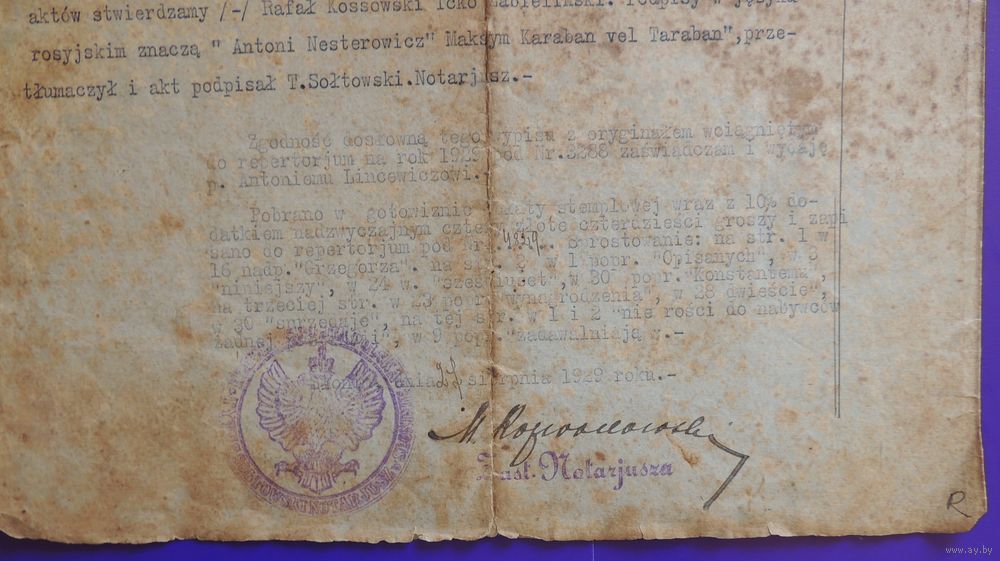 aktów stwierdzamy /-/ Rafał Kossowski Icko Zabieliński. Podpisy w języku
rosyjskim znaczą " Antoni Nesterowicz" Maksym Karaban vel Taraban",prze-
tłumaczył i akt podpisał T.Sołtowski.Notarjusz.-
Zgodność dosłowną tego wypisu z oryginałem wciągniętym
do repertorjum na rok 1929 pod Nr.3288 zaświadczam i wydaję
p. Antoniemu Lincewiczowi.-
Pobrano w gotowiznie opłaty stemplowej wraz z 10% do-
datkiem nadzwyczajnym cztery złote czterdzieści groszy i zapi
sano do repertorjum pod Nr. o prostowanie: na str. 1 w
16 nadp."Grzegorza". na str. 2, w 1 popr. "Opisanych", w 3
"niniejszy", w 24 w. w 30 popr."Konstantema",
na trzeciej str. w 23 popr."wynagrodzenia", w 28 dwieście",
w 30 na tej str. w 1 i 2 "nie rości do nabywców
żadnej w 9 popr."zadawalniają
dnia 27 sierpnia 1929 roku.-
Zast. Notarjusza
R
www.ay.by